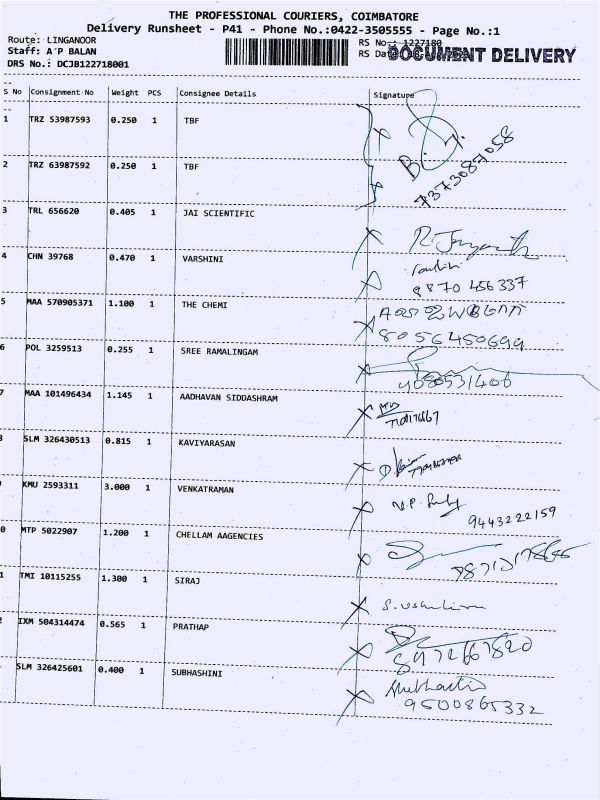 THE PROFESSIONAL COURIERS, COIMBATORE
Delivery Runsheet - P41 - Phone No.:0422-3505555 - Page No.:1
Route: LINGANOOR
RS No.: 1227180
Staff: A P BALAN
RS Date
DOCUMENT DELIVERY
DRS No.: DCJB122718001
S No Consignment No Weight PCS Consignee Details Signature
1 TRZ 53987593 0.250 1 TBF
B. J.
7373087058
2 TRZ 63987592 0.250 1 TBF
3 TRL 656620 0.405 1 JAI SCIENTIFIC
4 CHN 39768 0.470 1 VARSHINI
9870 456 337
5 MAA 570905371 1.100 1 THE CHEMI
8056450699
6 POL 3259513 0.255 1 SREE RAMALINGAM
7 MAA 101496434 1.145 1 AADHAVAN SIDDASHRAM
SLM 326430513 0.815 1 KAVIYARASAN
KMU 2593311 3.000 1 VENKATRAMAN
9443222159
0 MTP 5022907 1.200 1 CHELLAM AAGENCIES
1 TMI 10115255 1.300 1 SIRAJ
2 IXM 504314474 0.565 1 PRATHAP
SLM 326425601 0.400 1 SUBHASHINI
Subhashini
9500865332